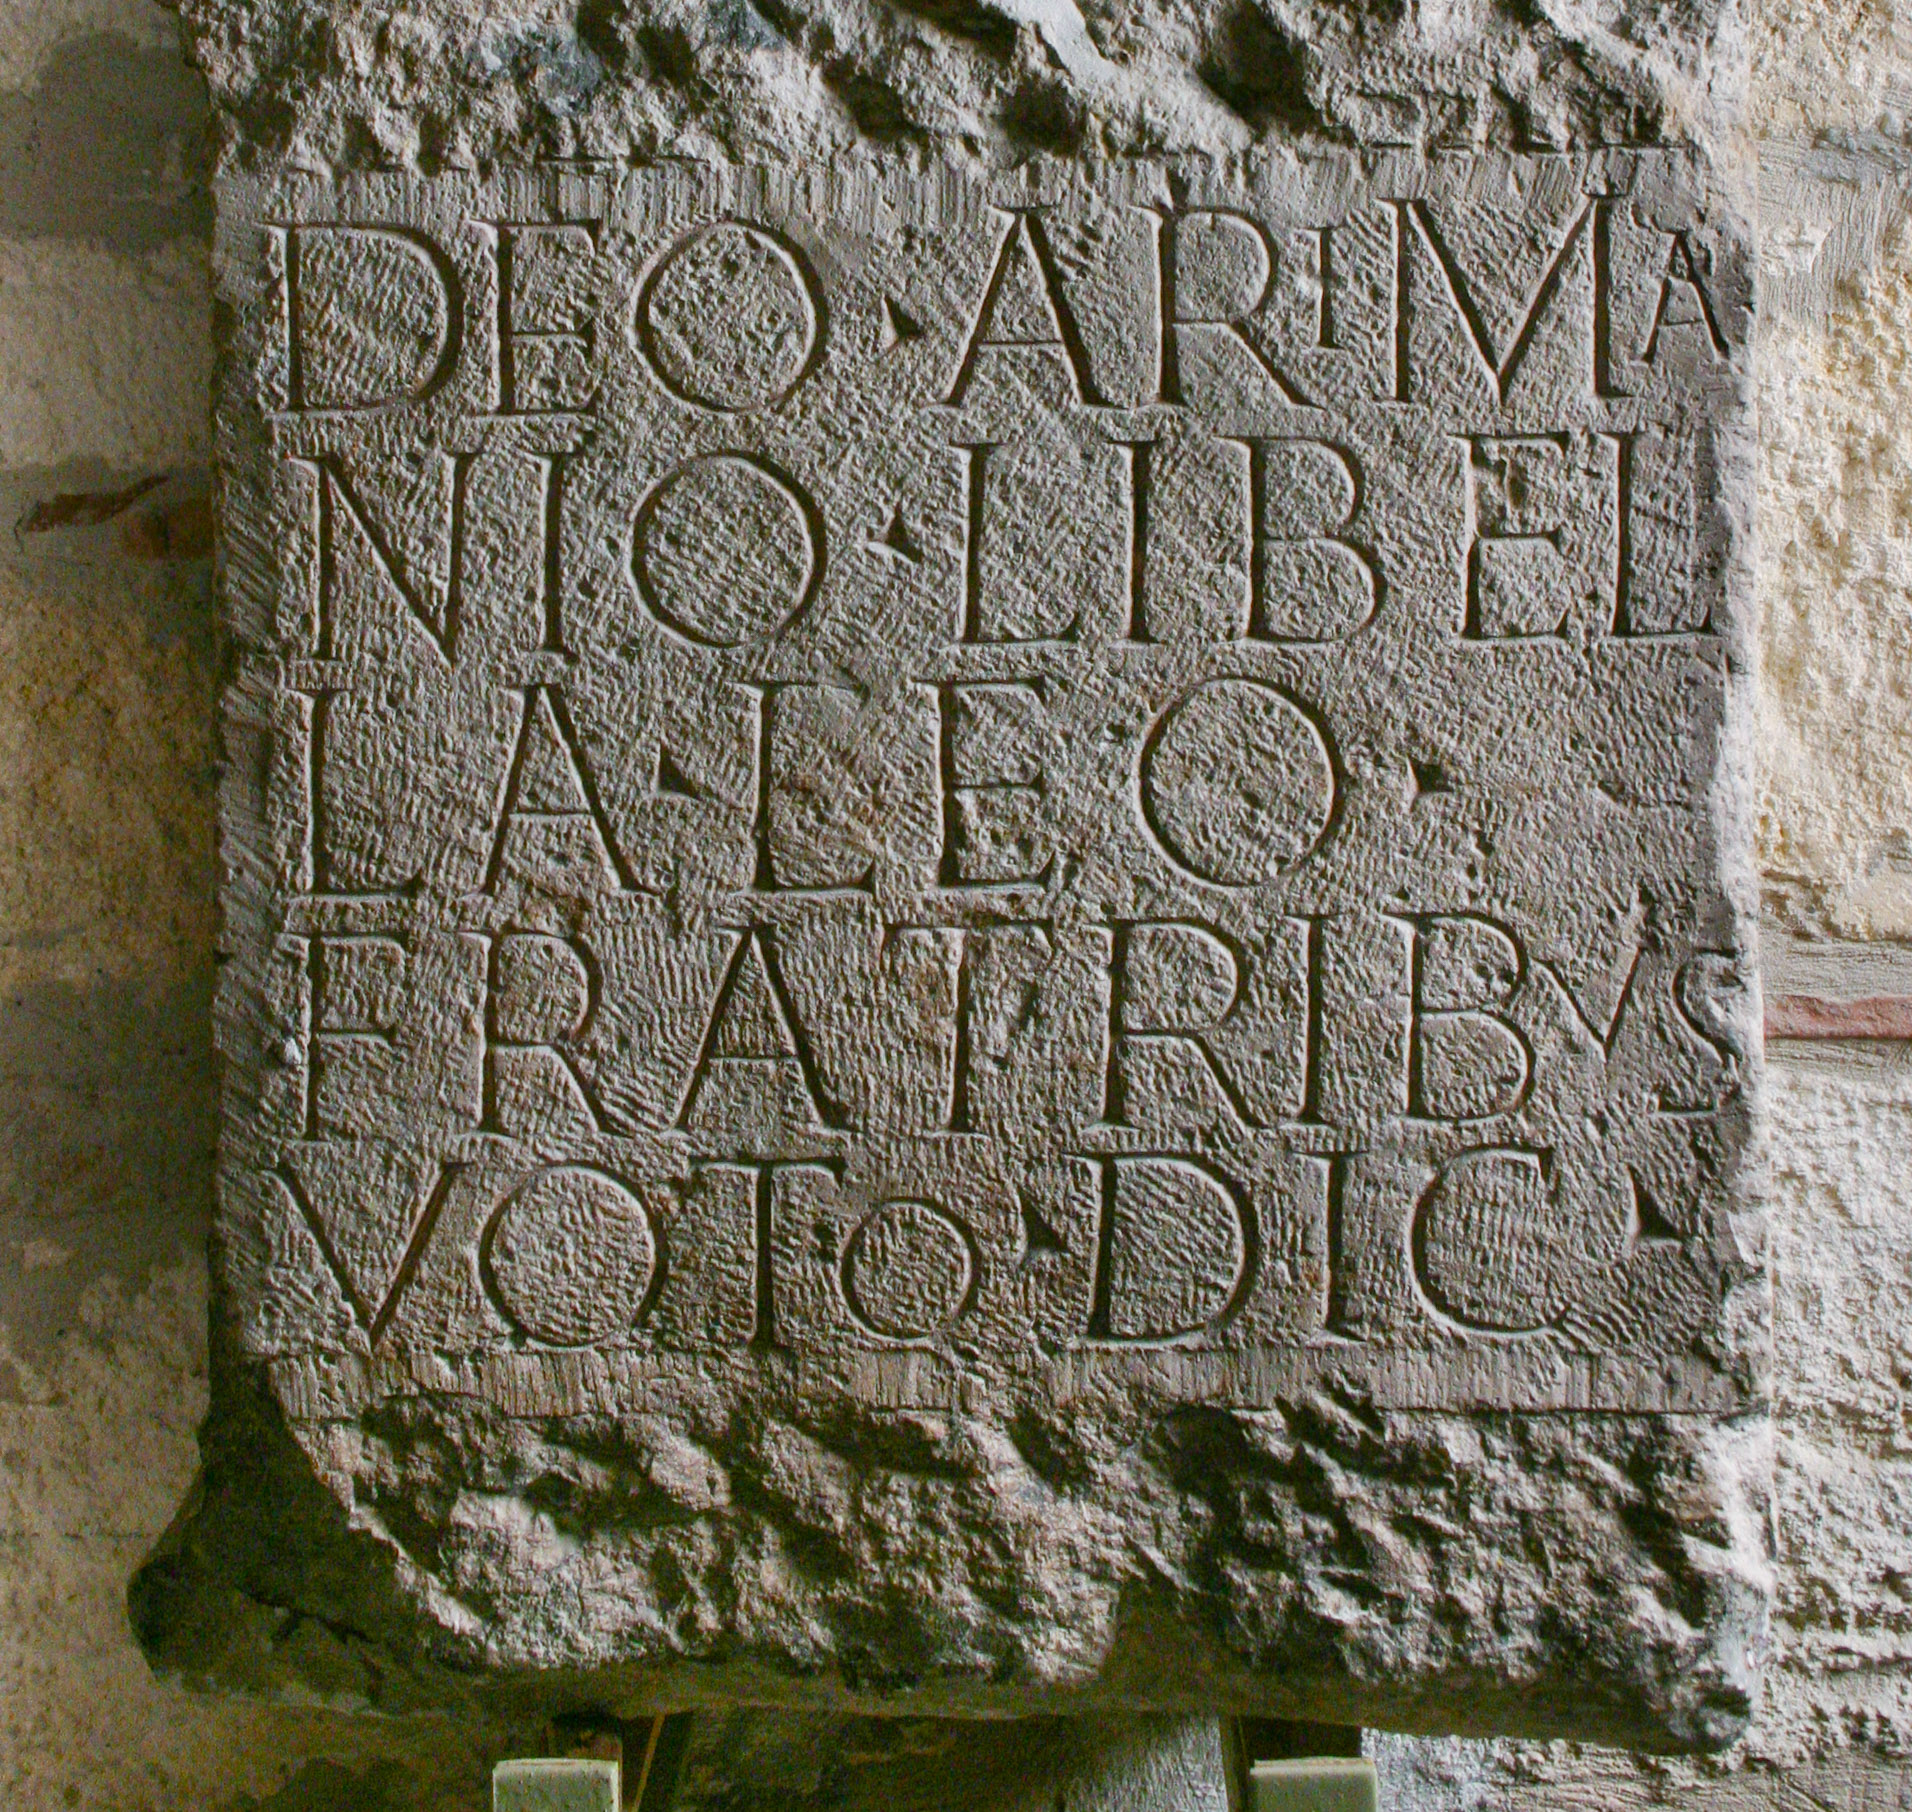 DEO · ARIMA
NIO · LIBEL
LA · LEO ·
FRATRIBVS
VOTO · DIC ·